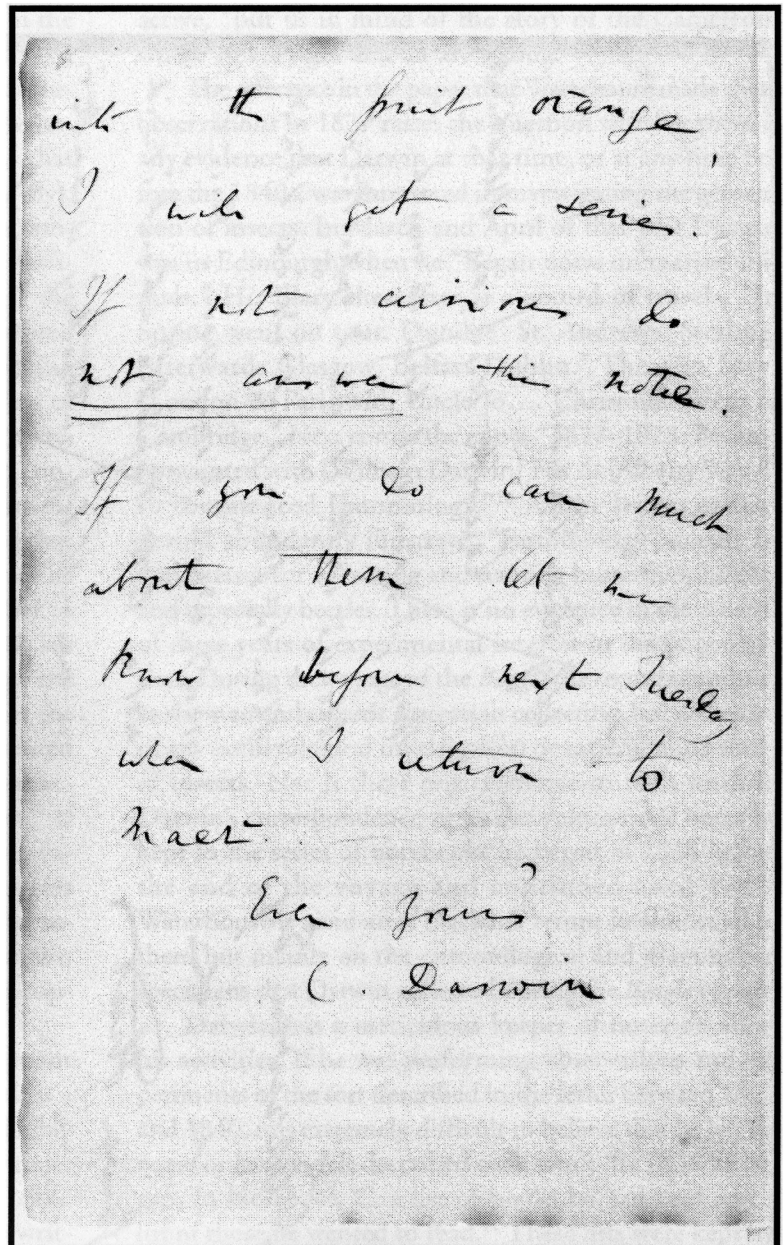 with the fruit orange,
I will get a series
If not curious do
not answer this notice.
If you do care much
about them let me
know before next Tuesday
when I return to
Maer
Ever yours
C Darwin